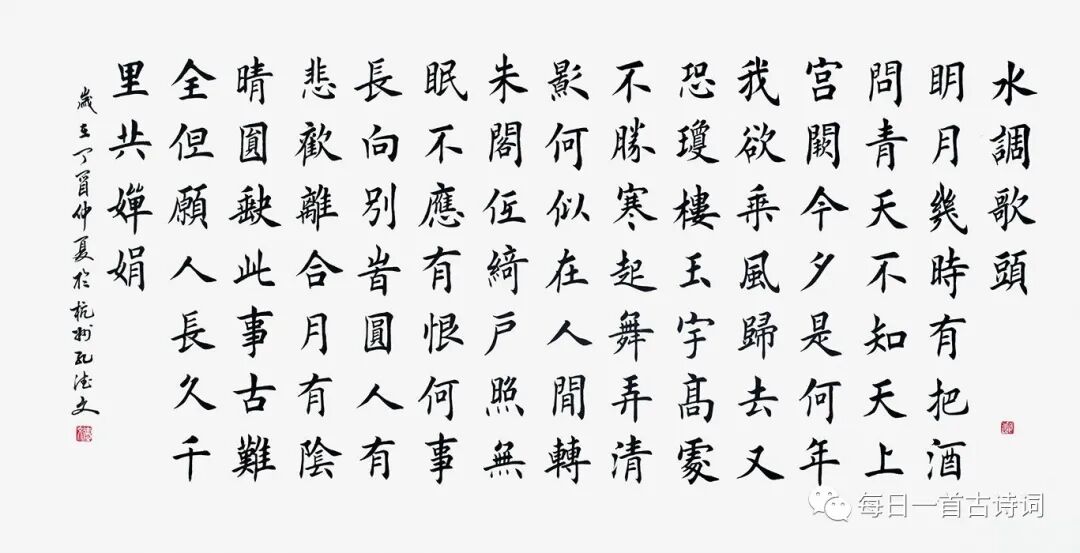 水調歌頭
明月幾時有把酒
問青天不知天上
宮闕今夕是何年
我欲乘風歸去又
恐瓊樓玉宇高處
不勝寒起舞弄清
影何似在人間轉
朱閣低綺戶照無
眠不應有恨何事
長向別時圓人有
悲歡離合月有陰
晴圓缺此事古難
全但願人長久千
里共嬋娟
歲在丁酉仲夏於杭州孔德文
每日一首古诗词